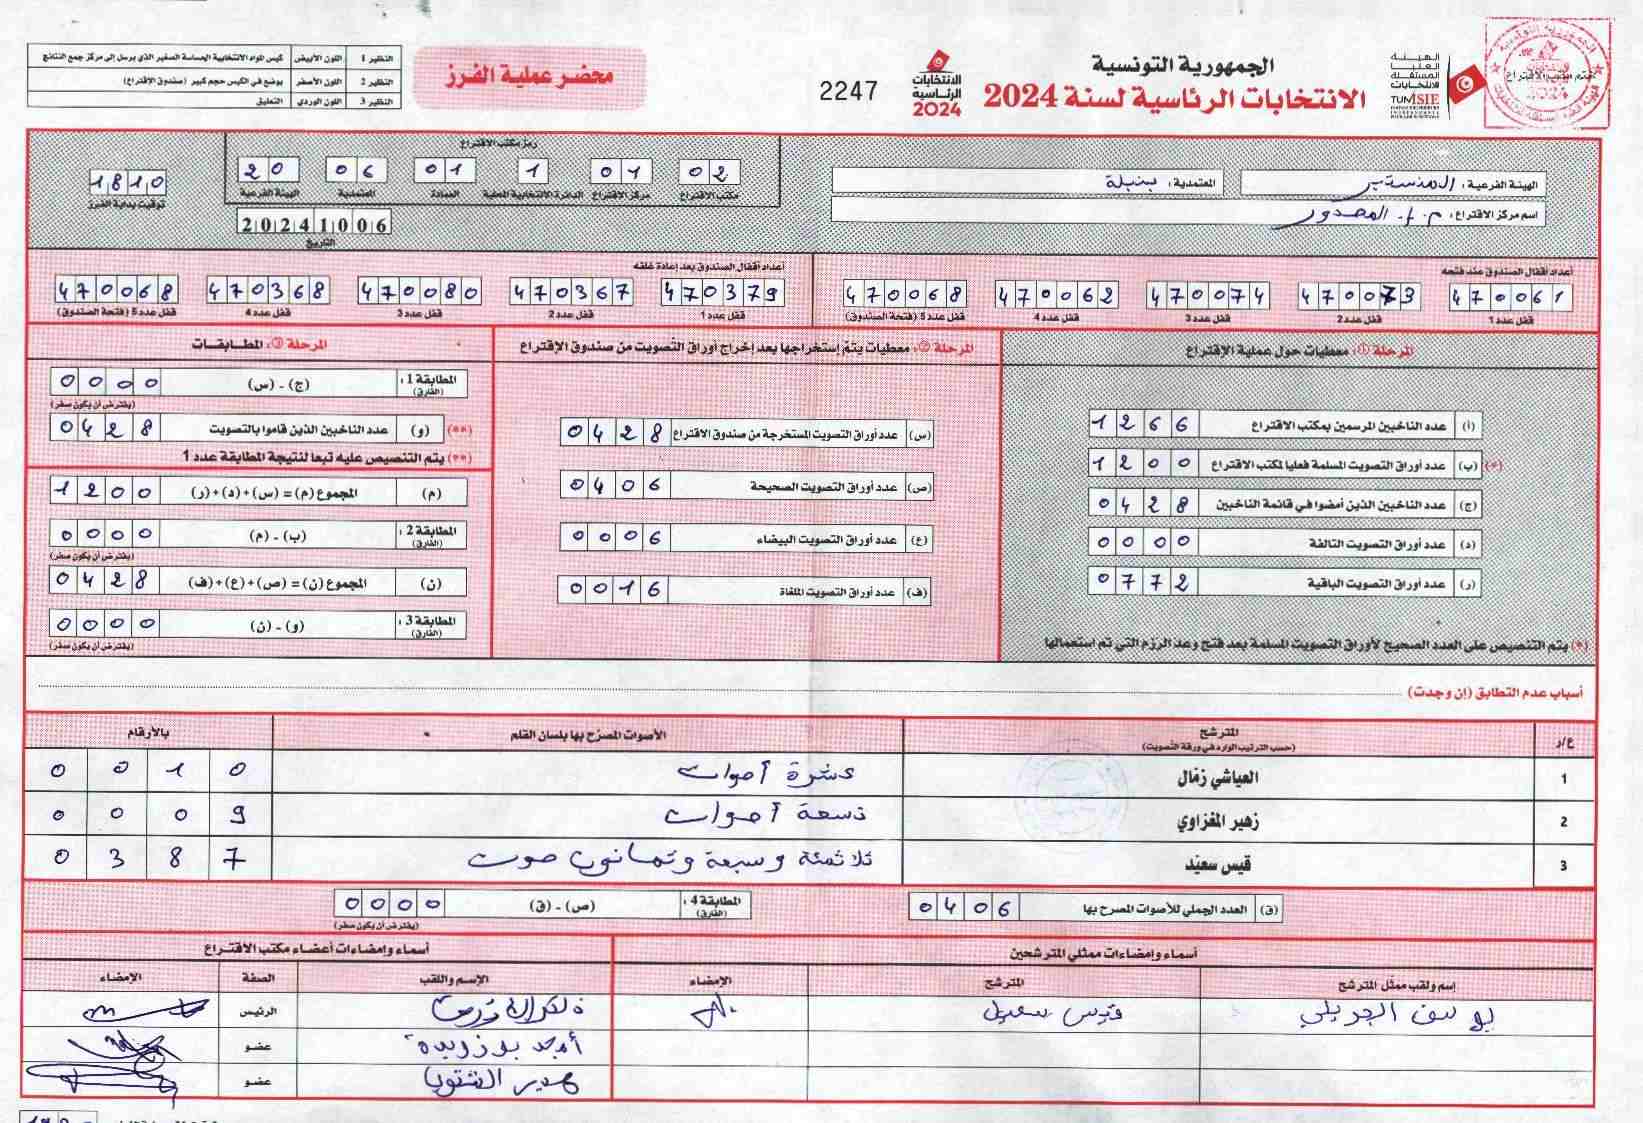 الهيئة العليا المستقلة للانتخابات
TUNISIE
ختم مكتب الاقتراع
الجمهورية التونسية
الانتخابات الرئاسية لسنة 2024
الانتخابات الرئاسية 2024
2247
محضر عملية الفرز
النظير 1 اللون الأبيض كيس المواد الانتخابية الحساسة الصغير الذي يرسل إلى مركز جمع النتائج
النظير 2 اللون الأصفر يوضع في الكيس حجم كبير (صندوق الاقتراع)
النظير 3 اللون الوردي التعليق
الهيئة الفرعية : المنستير
المعتمدية : بنبلة
اسم مركز الاقتراع : م.إ. المصدور
رمز مكتب الاقتراع
02 01 1 01 06 20
مكتب الاقتراع مركز الاقتراع الدائرة الانتخابية المحلية العمادة المعتمدية الهيئة الفرعية
20241006
التاريخ
1810
توقيت بداية الفرز
أعداد أقفال الصندوق عند فتحه
470061 470073 470074 470062 470068
قفل عدد 1 قفل عدد 2 قفل عدد 3 قفل عدد 4 قفل عدد 5 (فتحة الصندوق)
أعداد أقفال الصندوق بعد إعادة غلقه
470379 470367 470080 470368 470068
قفل عدد 1 قفل عدد 2 قفل عدد 3 قفل عدد 4 قفل عدد 5 (فتحة الصندوق)
المرحلة ①: معطيات حول عملية الإقتراع
(أ) عدد الناخبين المرسمين بمكتب الاقتراع 1266
(*) (ب) عدد أوراق التصويت المسلمة فعليا لمكتب الاقتراع 1200
(ج) عدد الناخبين الذين أمضوا في قائمة الناخبين 0428
(د) عدد أوراق التصويت التالفة 0000
(ر) عدد أوراق التصويت الباقية 0772
(*) يتم التنصيص على العدد الصحيح لأوراق التصويت المسلمة بعد فتح وعد الرزم التي تم استعمالها
المرحلة ②: معطيات يتم إستخراجها بعد إخراج أوراق التصويت من صندوق الإقتراع
(س) عدد أوراق التصويت المستخرجة من صندوق الاقتراع 0428
(ص) عدد أوراق التصويت الصحيحة 0406
(ع) عدد أوراق التصويت البيضاء 0006
(ف) عدد أوراق التصويت الملغاة 0016
المرحلة ③: المطابقات
المطابقة 1 : (الفارق) (ج) - (س) 0000
(يفترض أن يكون صفر)
(**) (و) عدد الناخبين الذين قاموا بالتصويت 0428
(**) يتم التنصيص عليه تبعا لنتيجة المطابقة عدد 1
(م) المجموع (م) = (س)+(د)+(ر) 1200
المطابقة 2 : (الفارق) (ب) - (م) 0000
(يفترض أن يكون صفر)
(ن) المجموع (ن) = (ص)+(ع)+(ف) 0428
المطابقة 3 : (الفارق) (و) - (ن) 0000
(يفترض أن يكون صفر)
أسباب عدم التطابق (إن وجدت)
ع/ر المترشح الأصوات المصرّح بها بلسان القلم بالأرقام
(حسب الترتيب الوارد في ورقة التصويت)
1 العياشي زمّال عشرة أصوات 0010
2 زهير المغزاوي تسعة أصوات 0009
3 قيس سعيّد ثلاثمئة وسبعة وثمانون صوت 0387
(ق) العدد الجملي للأصوات المصرح بها 0406
المطابقة 4 : (الفارق) (ص) - (ق) 0000
(يفترض أن يكون صفر)
أسماء وإمضاءات ممثلي المترشحين
إسم ولقب ممثل المترشح المترشح الإمضاء
يوسف الجريبي قيس سعيد
أسماء وإمضاءات أعضاء مكتب الاقتراع
الإسم واللقب الصفة الإمضاء
الرئيس
أمجد بوزويدة عضو
هدير الشتوي عضو